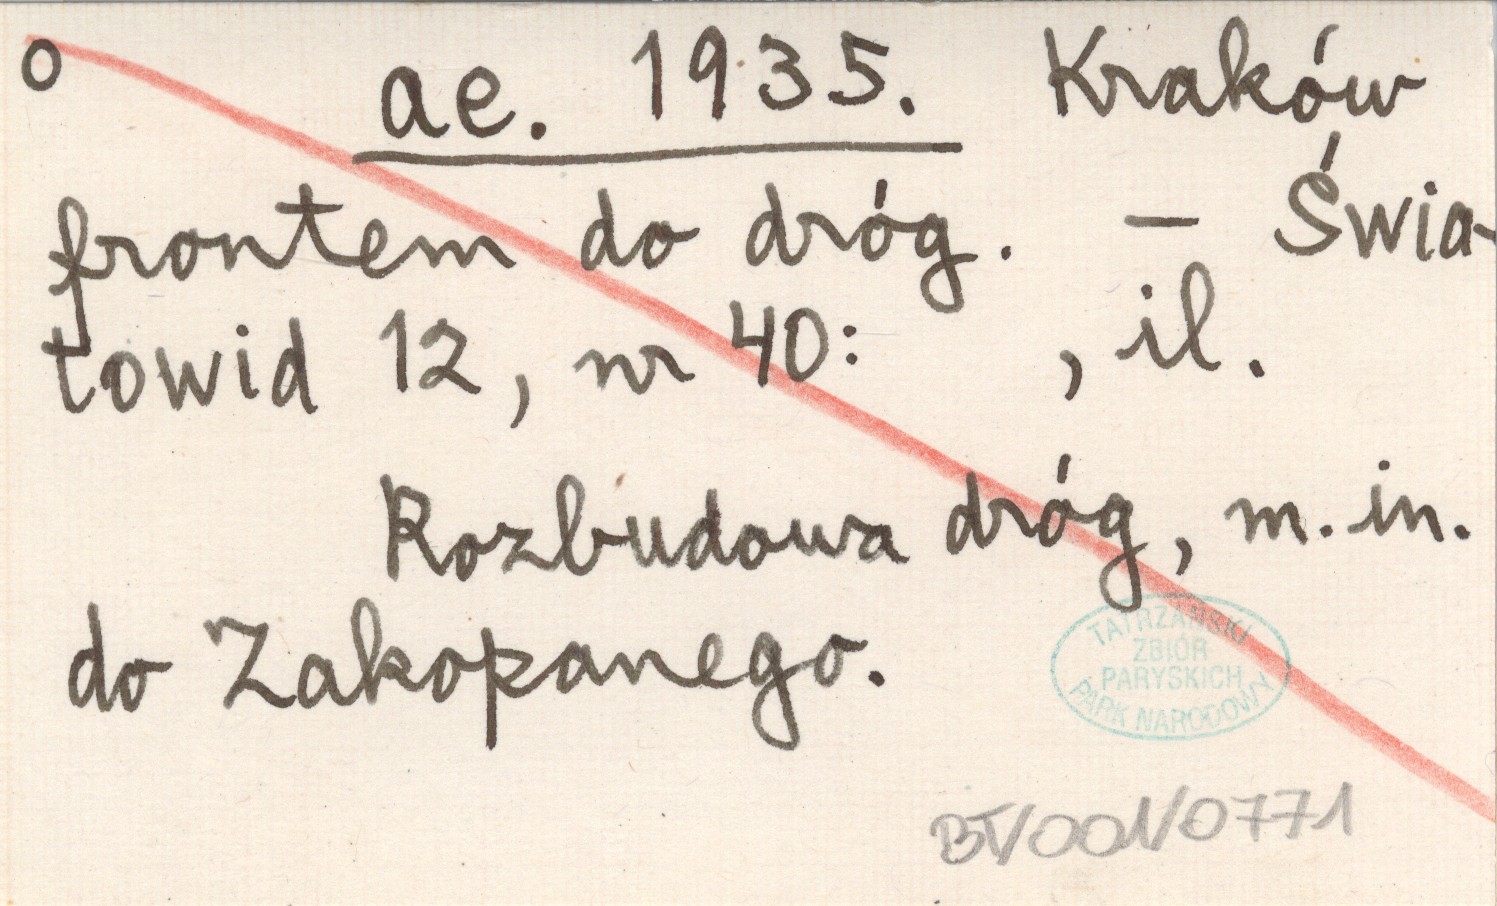 o ae. 1935. Kraków
frontem do dróg. – Świa-
towid 12, nr 40: , il.
Rozbudowa dróg, m. in.
do Zakopanego.
TATRZAŃSKI
ZBIÓR
PARYSKICH
PARK NARODOWY
BT/001/0771